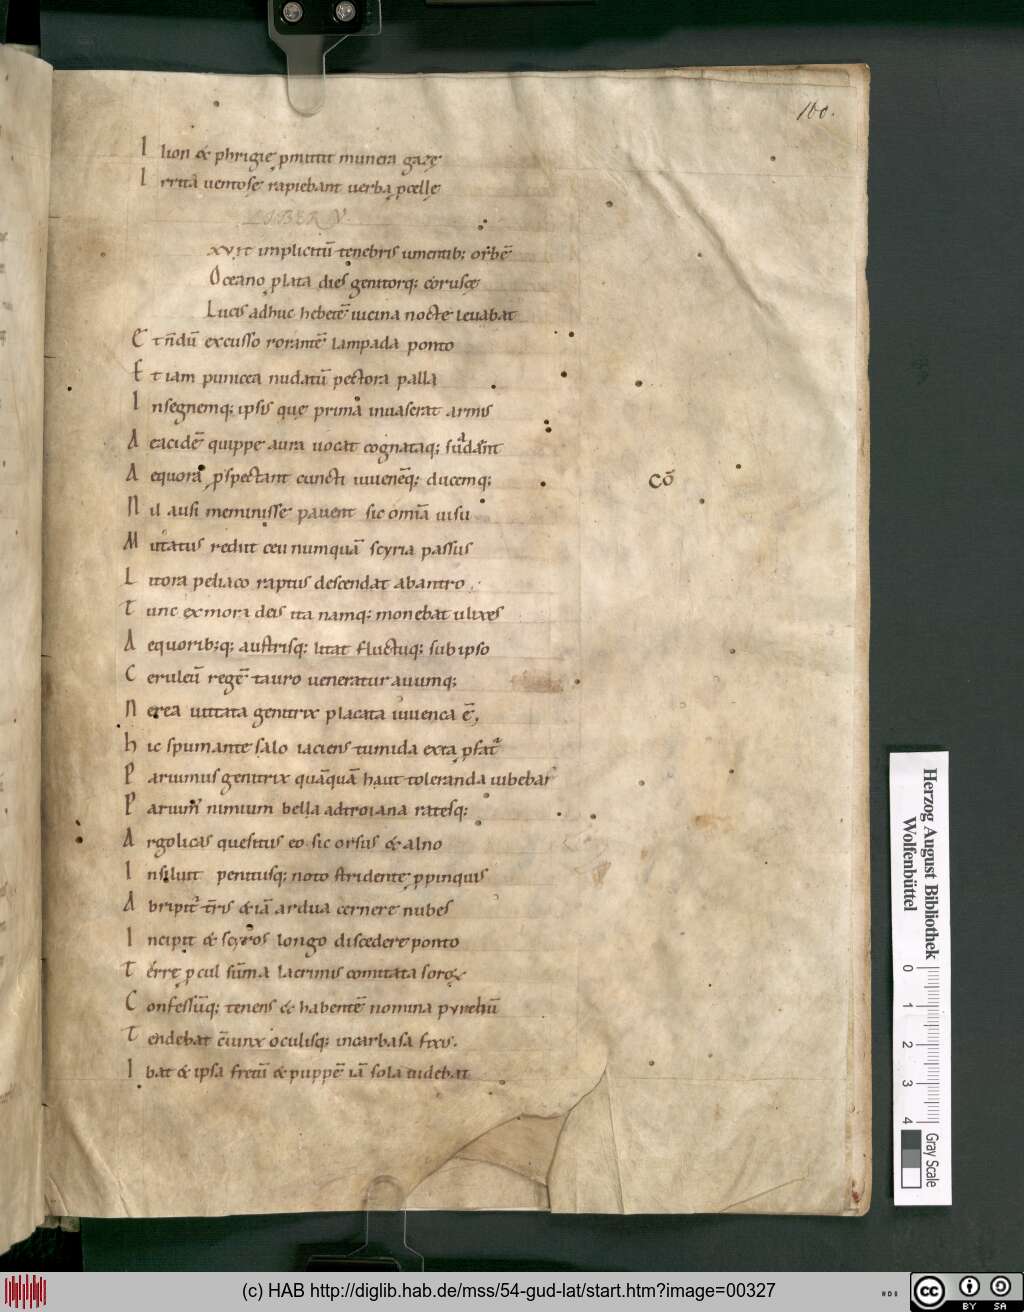 160.
I lion & phrigię pmittit munera gazę
I rrita uentosę rapiebant uerba pcellę
LIBER V.
xvit implicitū tenebris umentib; orbē
Oceano plata dies genitorq; coruscę
Lucis adhuc hebetē uicina nocte leuabat
E t nōdū excusso rorantē lampada ponto
E t iam punicea nudatū pectora palla
I nsegnemq; ipsis quę prima inuaserat armis
A eacidē quippe aura uocat cognataq; sudant
A equora pspectant cuncti iuuenēq; ducemq;
N il ausi meminisse pauent sic omīa uisu
M utatus rediit ceu numquā scyria passus
L itora peliaco raptus descendat abantro
T unc exmora deis ita namq; monebat ulixes
A equorib;q; austrisq; litat fluctuq; subipso
C eruleū regē tauro ueneratur auumq;
N erea uittata genitrix placata iuuenca ē,
h ic spumante salo iaciens tumida exta pfat
P aruimus genitrix quāquā haut toleranda iubebas
P aruim nimium bella adtroiana ratesq;
A rgolicas quesitus eo sic orsus & alno
I nsiluit penitusq; noto stridente ppinquis
A bripit tris & iā ardua cernere nubes
I ncipit & scyros longo discedere ponto
T errę pcul sūma lacrimis comitata soror
C onfessūq; tenens & habentē nomina pyrrhū
T endebat cōiunx oculisq; incarbasa fixis.
I bat & ipsa fretū & puppē iā sola uidebat
cō
Herzog August Bibliothek
Wolfenbüttel
0 1 2 3 4
Gray Scale
(c) HAB http://diglib.hab.de/mss/54-gud-lat/start.htm?image=00327
cc BY SA